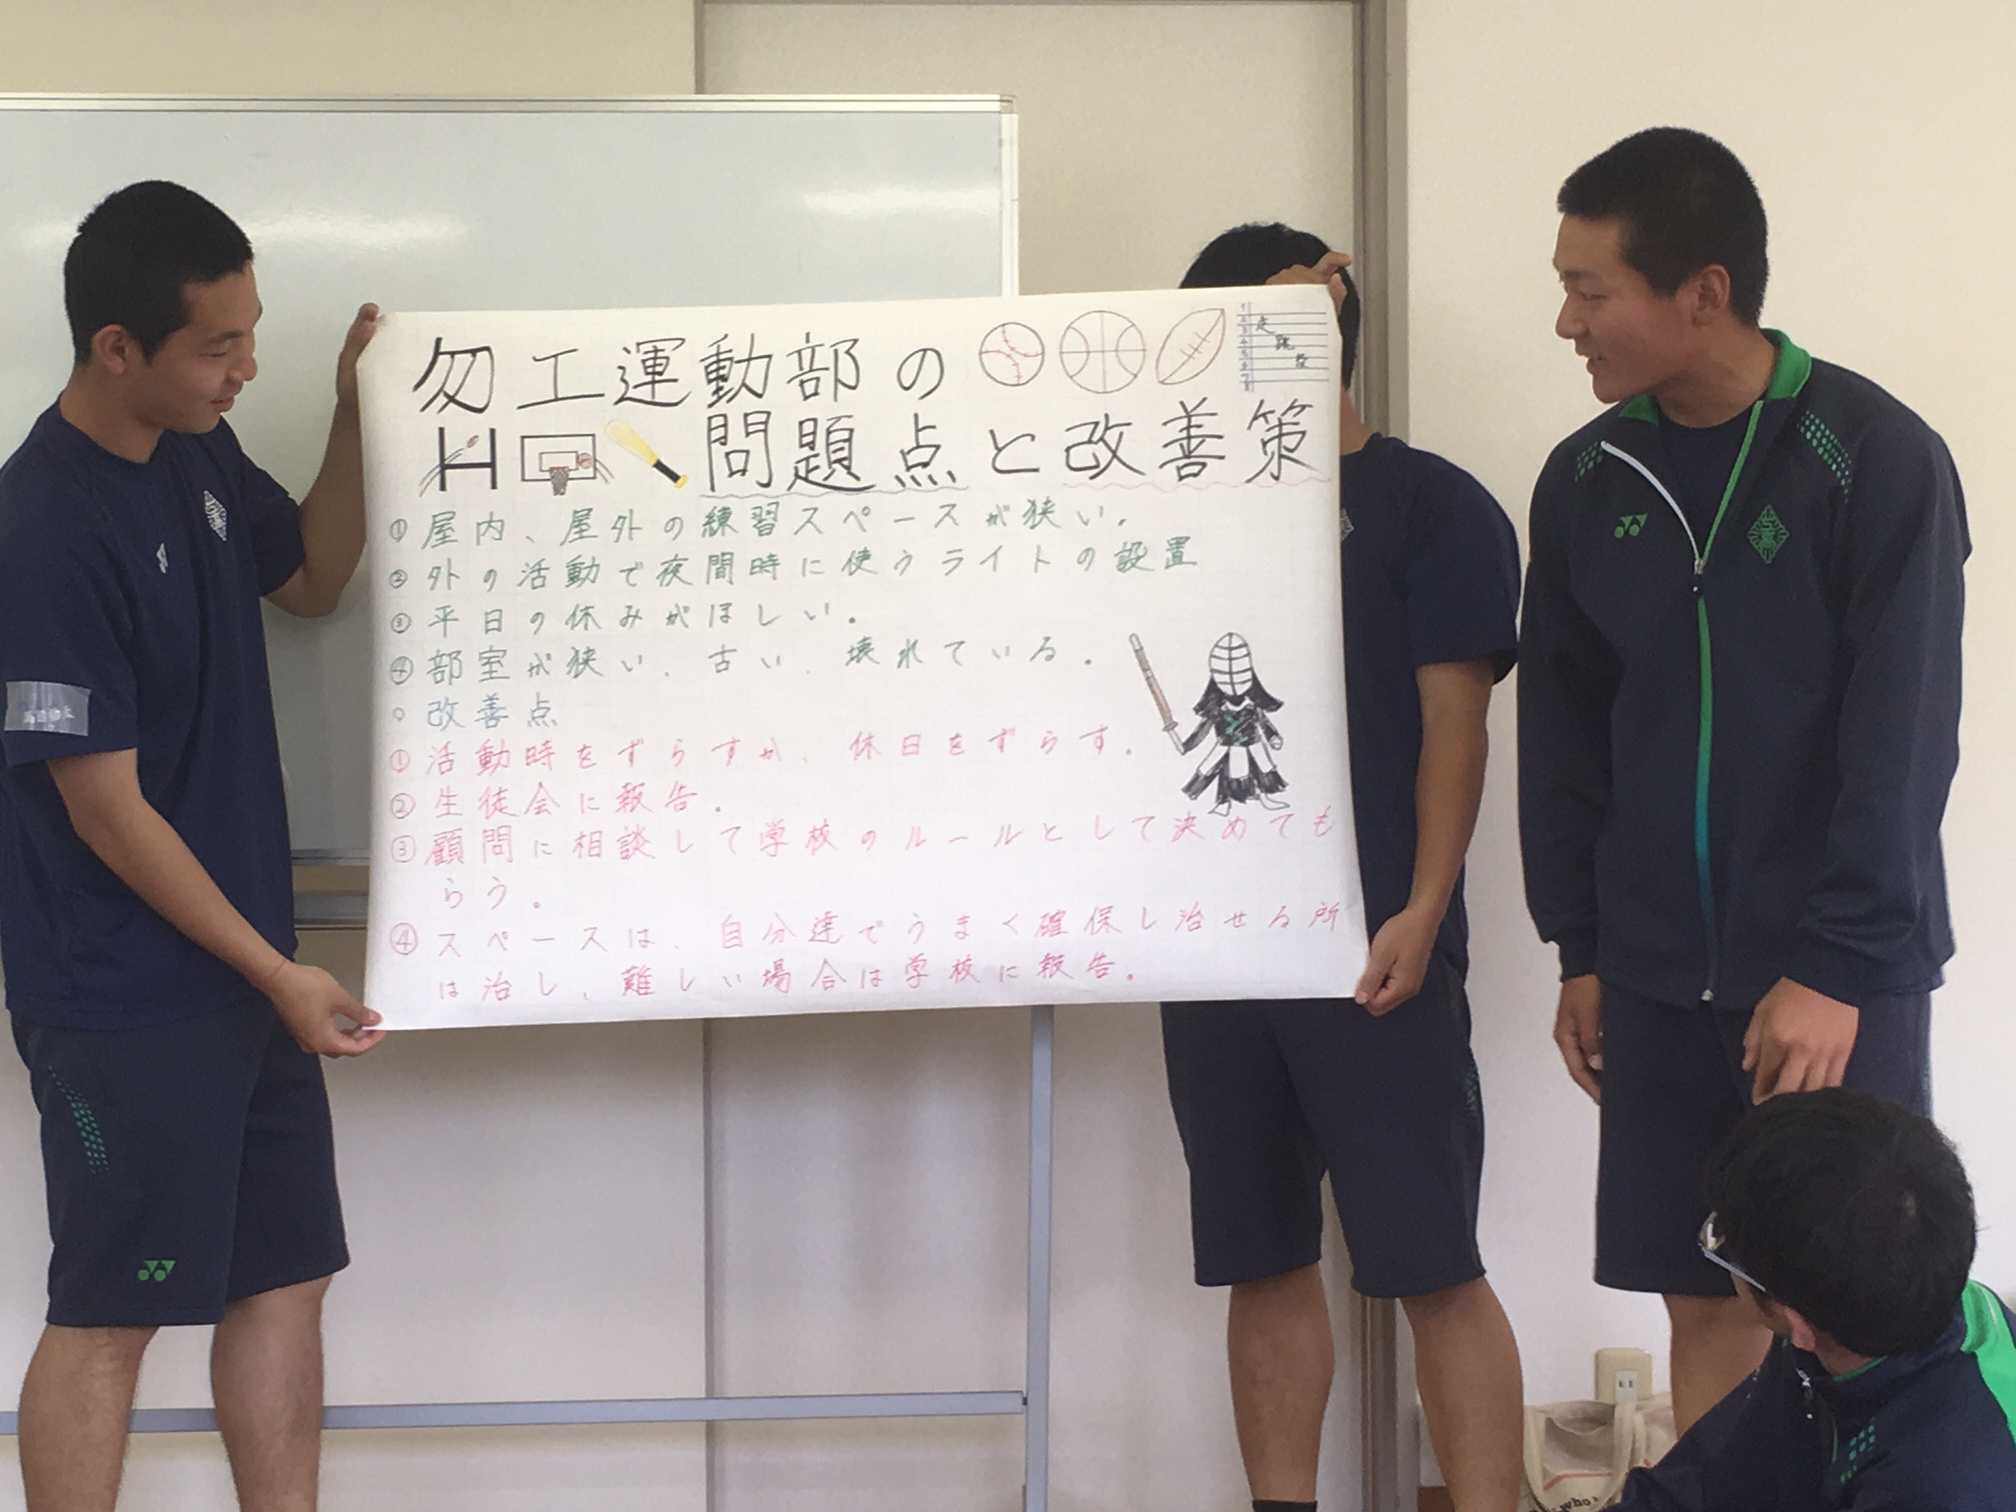 勿工運動部の
問題点と改善策
走
跳
投
①屋内、屋外の練習スペースが狭い。
②外の活動で夜間時に使うライトの設置
③平日の休みがほしい。
④部室が狭い、古い、壊れている。
○改善点
①活動時をずらすか、休日をずらす。
②生徒会に報告。
③顧問に相談して学校のルールとして決めても
らう。
④スペースは、自分達でうまく確保し治せる所
は治し、難しい場合は学校に報告。